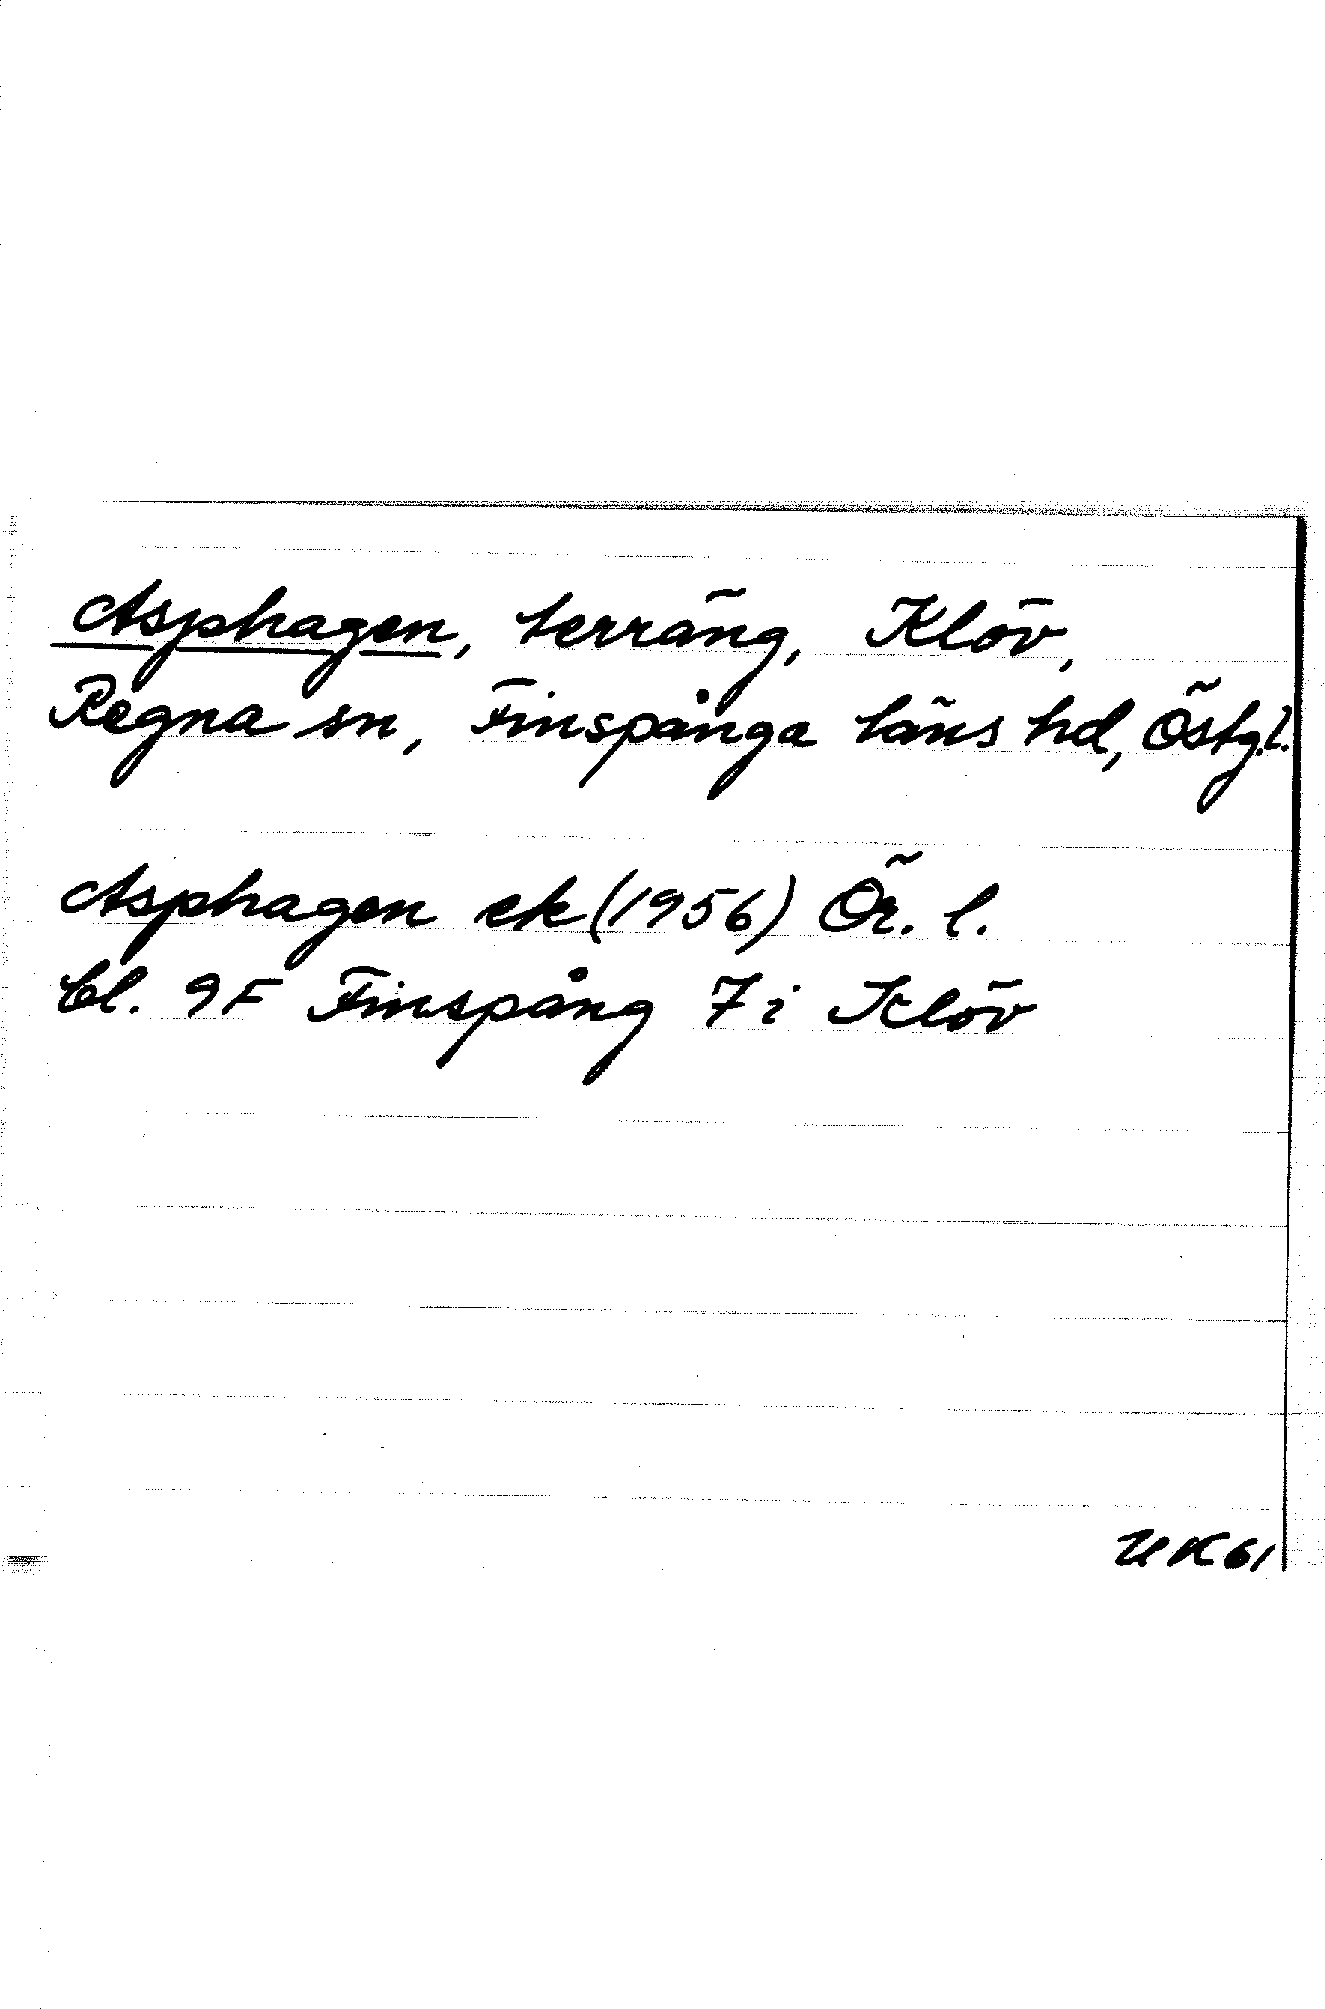 Asphagen, terräng, Klöv,
Regna sn, Finspånga läns hd, Östg.l.
Asphagen ek (1956) Ör. l.
bl. 9F Finspång 7i Klöv
UK61